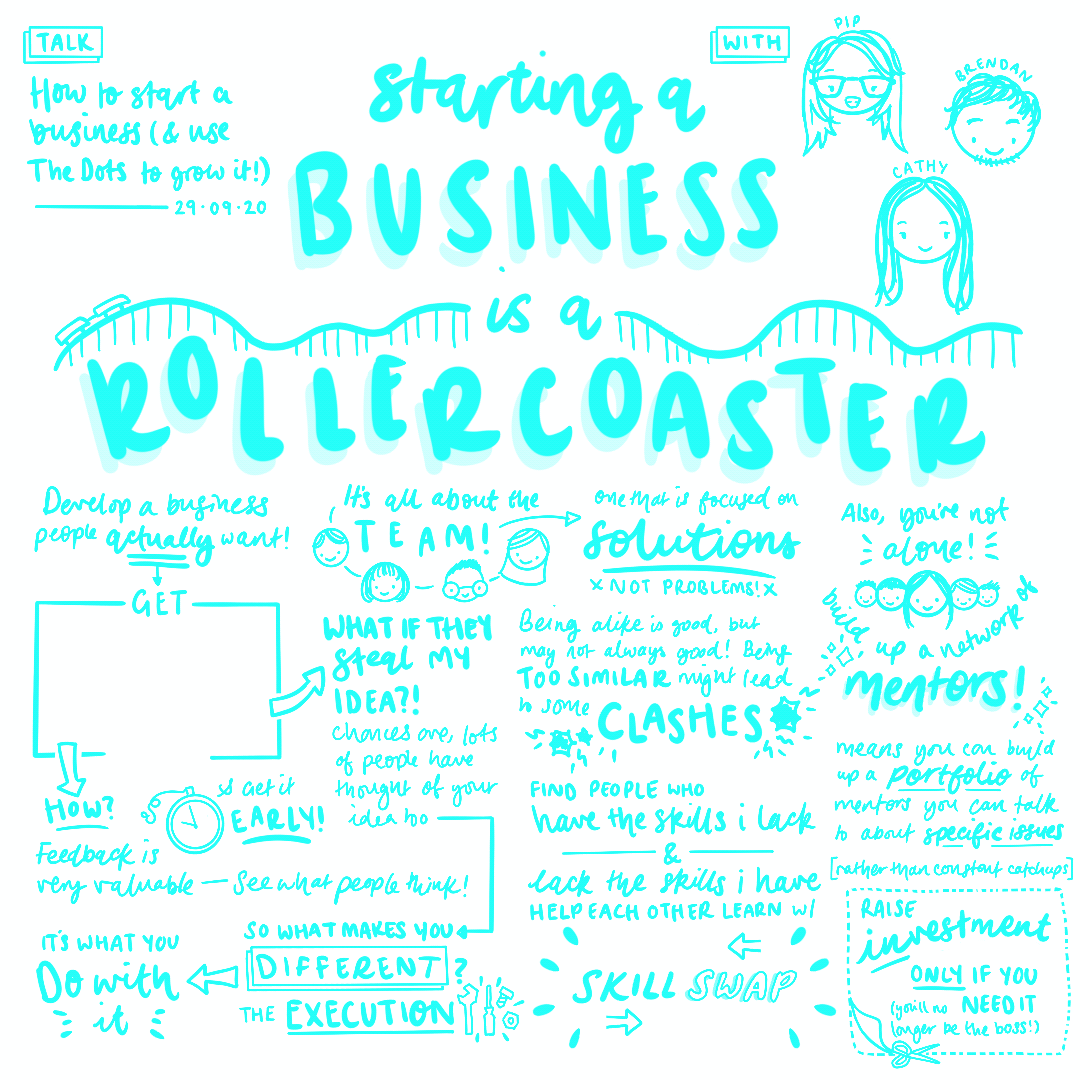 TALK
How to start a
business (& use
The Dots to grow it!)
29·09·20
starting a
BUSINESS
is a
ROLLERCOASTER
WITH
PIP
BRENDAN
CATHY
Develop a business
people actually want!
GET
HOW?
so Get it
EARLY!
Feedback is
very valuable — See what people think!
It's all about the
TEAM!
one that is focused on
solutions
x NOT PROBLEMS! x
WHAT IF THEY
steal MY
IDEA?!
chances are, lots
of people have
thought of your
idea too
SO WHAT MAKES YOU
DIFFERENT?
THE EXECUTION
IT'S WHAT YOU
Do with
it
Being alike is good, but
may not always good! Being
TOO SIMILAR might lead
to some CLASHES
FIND PEOPLE WHO
have the skills i lack
&
lack the skills i have
HELP EACH OTHER LEARN W/
SKILL SWAP
Also, you're not
alone!
build up a network of
mentors!
means you can build
up a portfolio of
mentors you can talk
to about specific issues
[rather than constant catchups]
RAISE
investment
ONLY IF YOU
NEED IT
(you'll no
longer be the boss!)